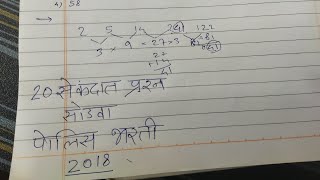 4) 58
→ 2 5 14 41 122
3 9 = 27 × 3 81
27
20 सेकंदात प्रश्न
सोडवा
पोलिस भरती
2018